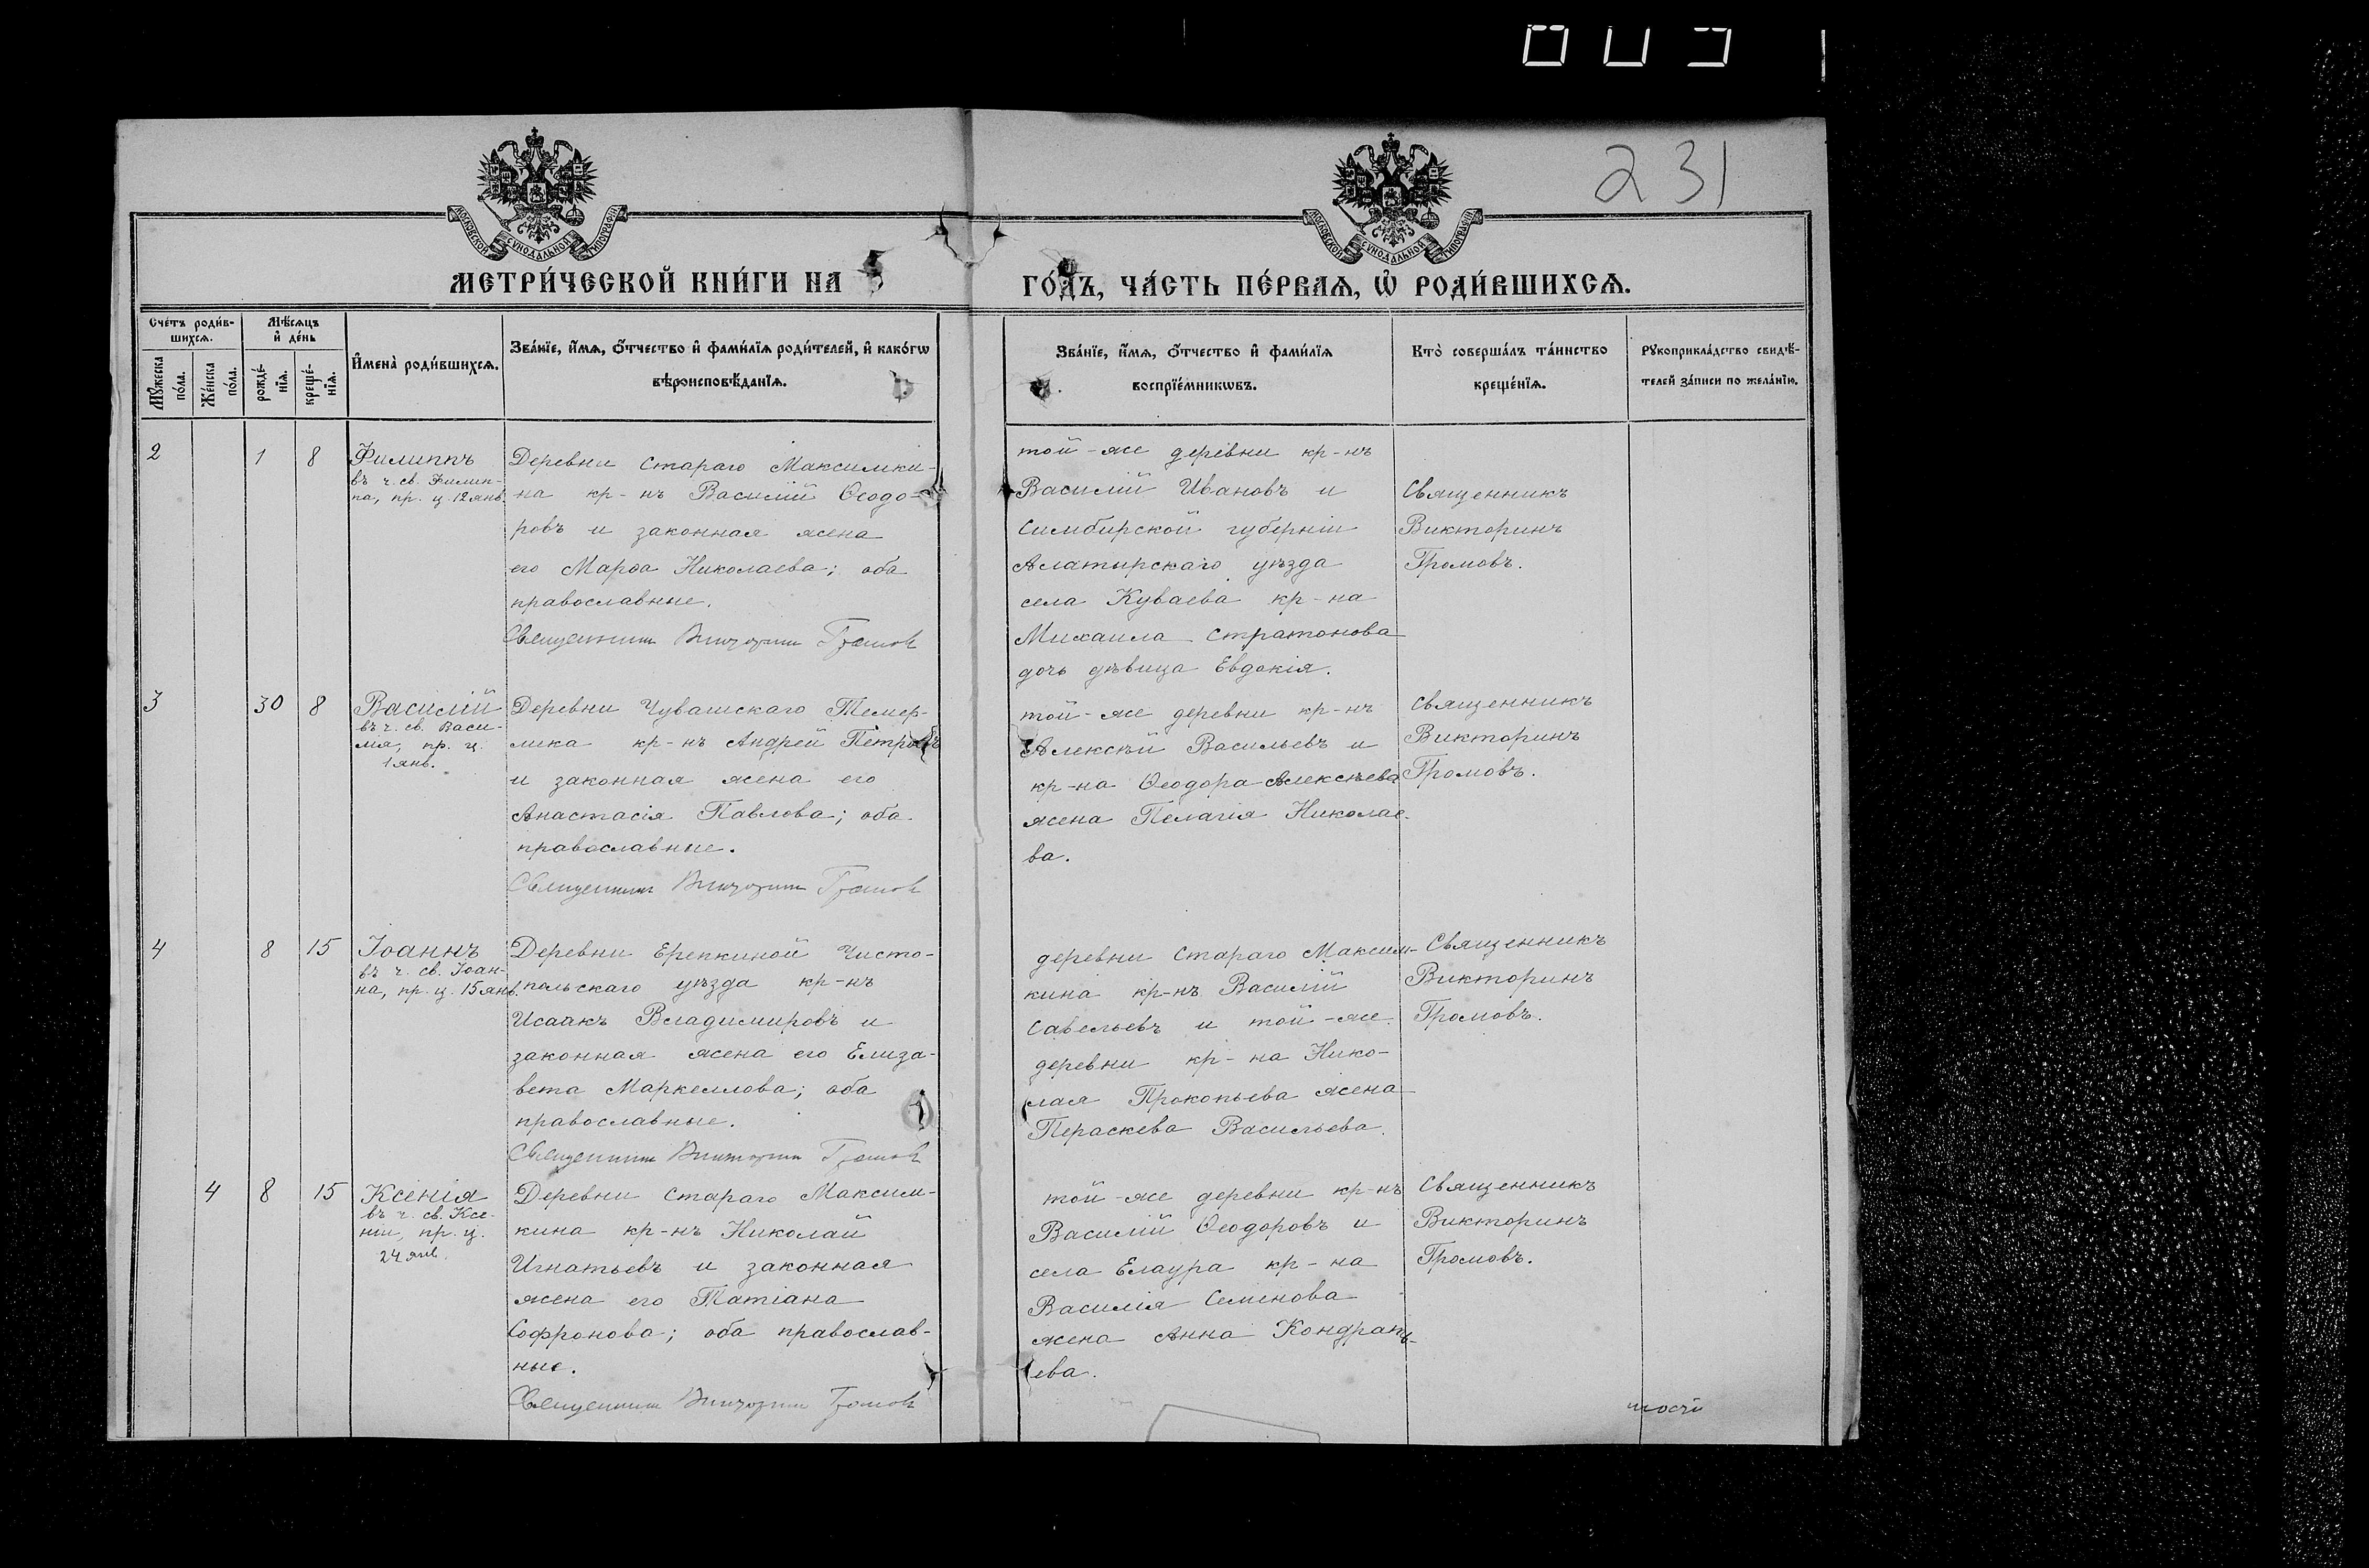 231
МОСКОВСКОЙ СУНОДАЛЬНОЙ ТИПОГРАФІИ
МОСКОВСКОЙ СУНОДАЛЬНОЙ ТИПОГРАФІИ
МЕТРИ́ЧЕСКОЙ КНИ́ГИ НА
ГО́ДЪ, ЧА́СТЬ ПЕ́РВАѦ, Ѡ҆ РОДИ́ВШИХСѦ.
Сче́тъ роди́в-
шихсѧ.
Мѹ́жеска
по́ла.
Же́нска
по́ла.
Мѣ́сѧцъ
и҆ де́нь
рожде́-
нїѧ.
креще́-
нїѧ.
И҆мена̀ роди́вшихсѧ.
Зва́нїе, и҆́мѧ, ѻ҆́тчество и҆ фами́лїѧ роди́телей, и҆ како́гѡ
вѣроисповѣ́данїѧ.
Зва́нїе, и҆́мѧ, ѻ҆́тчество и҆ фами́лїѧ
воспрїе́мникѡвъ.
Кто̀ соверша́лъ та́инство
креще́нїѧ.
Рѹкоприкла́дство свидѣ́-
телей за́писи по жела́нїю.
2
1
8
Филиппъ
въ ч. св. Филип-
па, пр. ц. 12 янв
Деревни Стараго Максимки-
на кр-нъ Василій Ѳеодо-
ровъ и законная жена
его Марѳа Николаева; оба
православные.
Священникъ Викторинъ Громовъ
той-же деревни кр-нъ
Василій Ивановъ и
Симбирской губерніи
Алатырскаго уѣзда
села Куваева кр-на
Михаила Стратонова
дочь дѣвица Евдокія.
Священникъ
Викторинъ
Громовъ.
3
30
8
Василій
въ ч. св. Васи-
лія, пр. ц.
1 янв.
Деревни Чувашскаго Темер-
лика кр-нъ Андрей Петровъ
и законная жена его
Анастасія Павлова; оба
православные.
Священникъ Викторинъ Громовъ
той-же деревни кр-нъ
Алексѣй Васильевъ и
кр-на Ѳеодора Алексѣева
жена Пелагія Николае-
ва.
Священникъ
Викторинъ
Громовъ.
4
8
15
Іоаннъ
въ ч. св. Іоан-
на, пр. ц. 15 янв.
Деревни Ерепкиной Чисто-
польскаго уѣзда кр-нъ
Исаакъ Владимировъ и
законная жена его Елиза-
вета Маркеллова; оба
православные.
Священникъ Викторинъ Громовъ
деревни Стараго Максим-
кина кр-нъ Василій
Савельевъ и той-же
деревни кр-на Нико-
лая Прокопьева жена
Пераскева Васильева.
Священникъ
Викторинъ
Громовъ.
4
8
15
Ксенія
въ ч. св. Ксе-
ніи, пр. ц.
24 янв.
Деревни Стараго Максим-
кина кр-нъ Николай
Игнатьевъ и законная
жена его Татіана
Софронова; оба православ-
ные.
Священникъ Викторинъ Громовъ
той-же деревни кр-нъ
Василій Ѳеодоровъ и
села Елаура кр-на
Василія Семенова
жена Анна Кондрать-
ева.
Священникъ
Викторинъ
Громовъ.